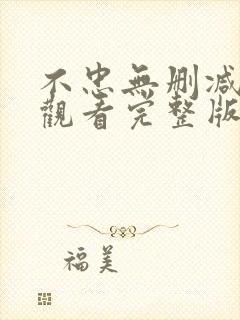 不忠無刪減
觀看完整版
福美